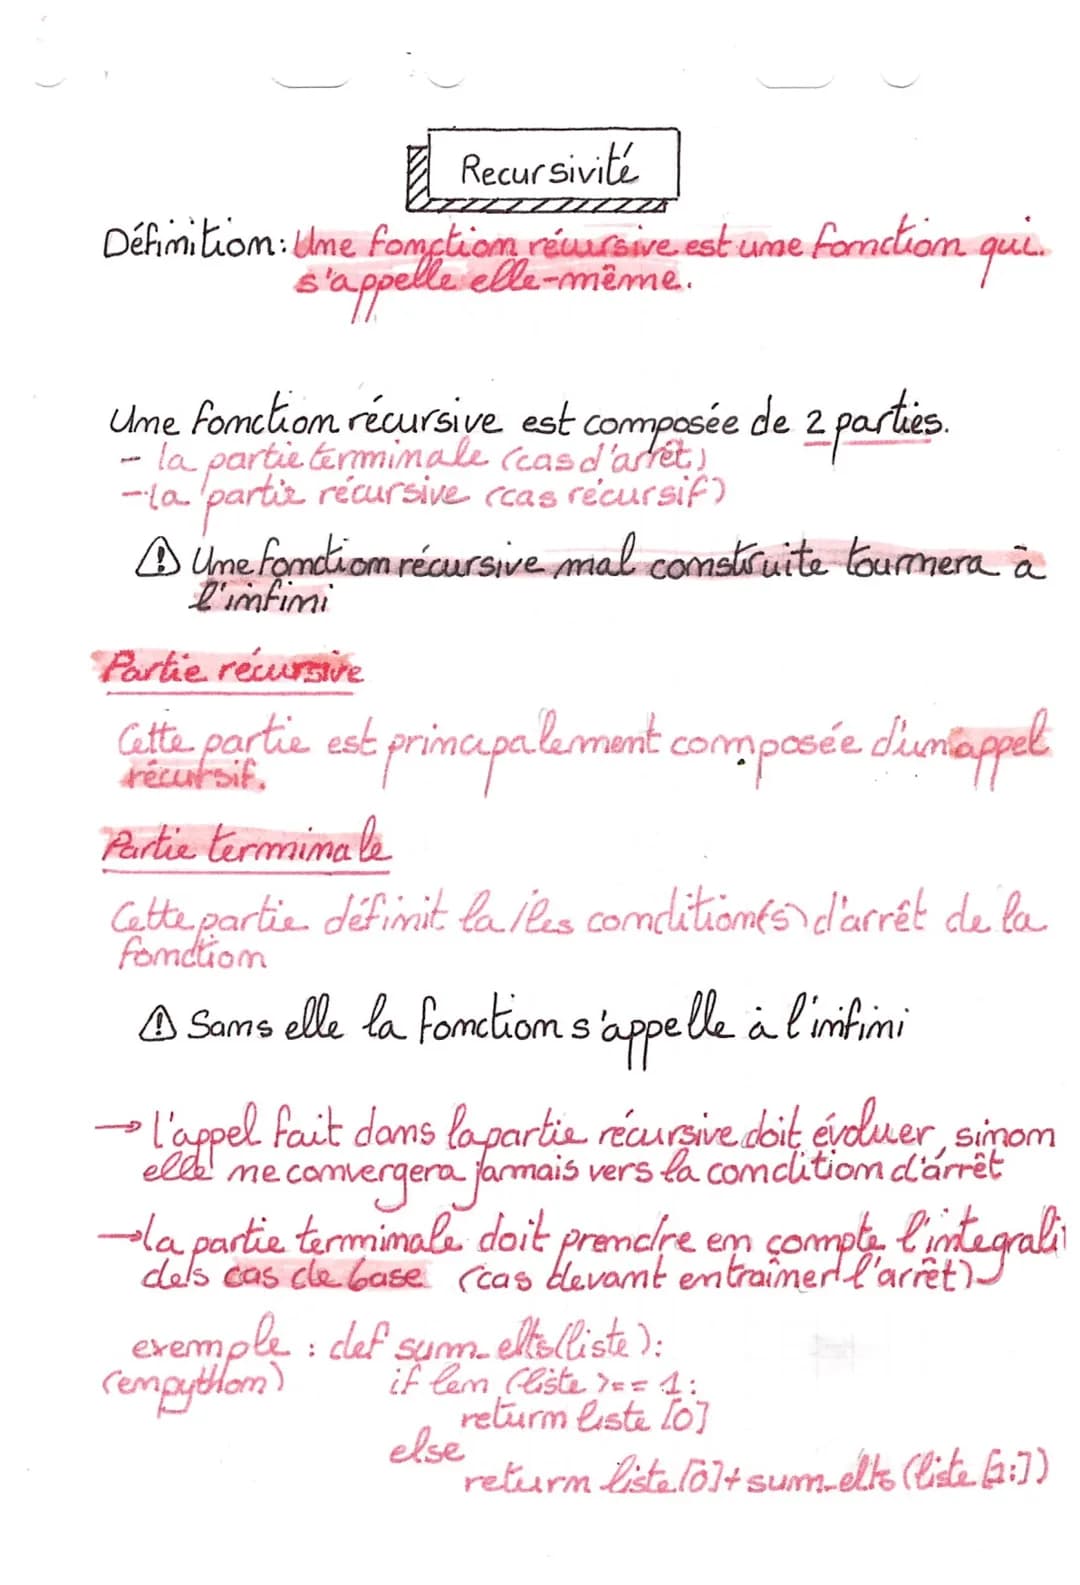 Recursivité
Définition: Une fonction récursive est une fonction qui
s'appelle elle-même.
Une fonction récursive est composée de 2 parties.
- la partie terminale (cas d'arrêt)
- la partie récursive (cas récursif)
⚠ Une fonction récursive mal construite tournera à
l'infini
Partie récursive
Cette partie est principalement composée d'un appel
récursif.
Partie terminale
Cette partie définit la/les condition(s) d'arrêt de la
fonction
⚠ Sans elle la fonction s'appelle à l'infini
→ l'appel fait dans la partie récursive doit évoluer, sinon
elle ne convergera jamais vers la condition d'arrêt
→ la partie terminale doit prendre en compte l'integrali
dels cas de base (cas devant entraîner l'arrêt)
exemple : def sum_elts(liste):
(en python) if len (liste)== 1:
return liste [0]
else
return liste[0]+ sum_elts (liste [1:])